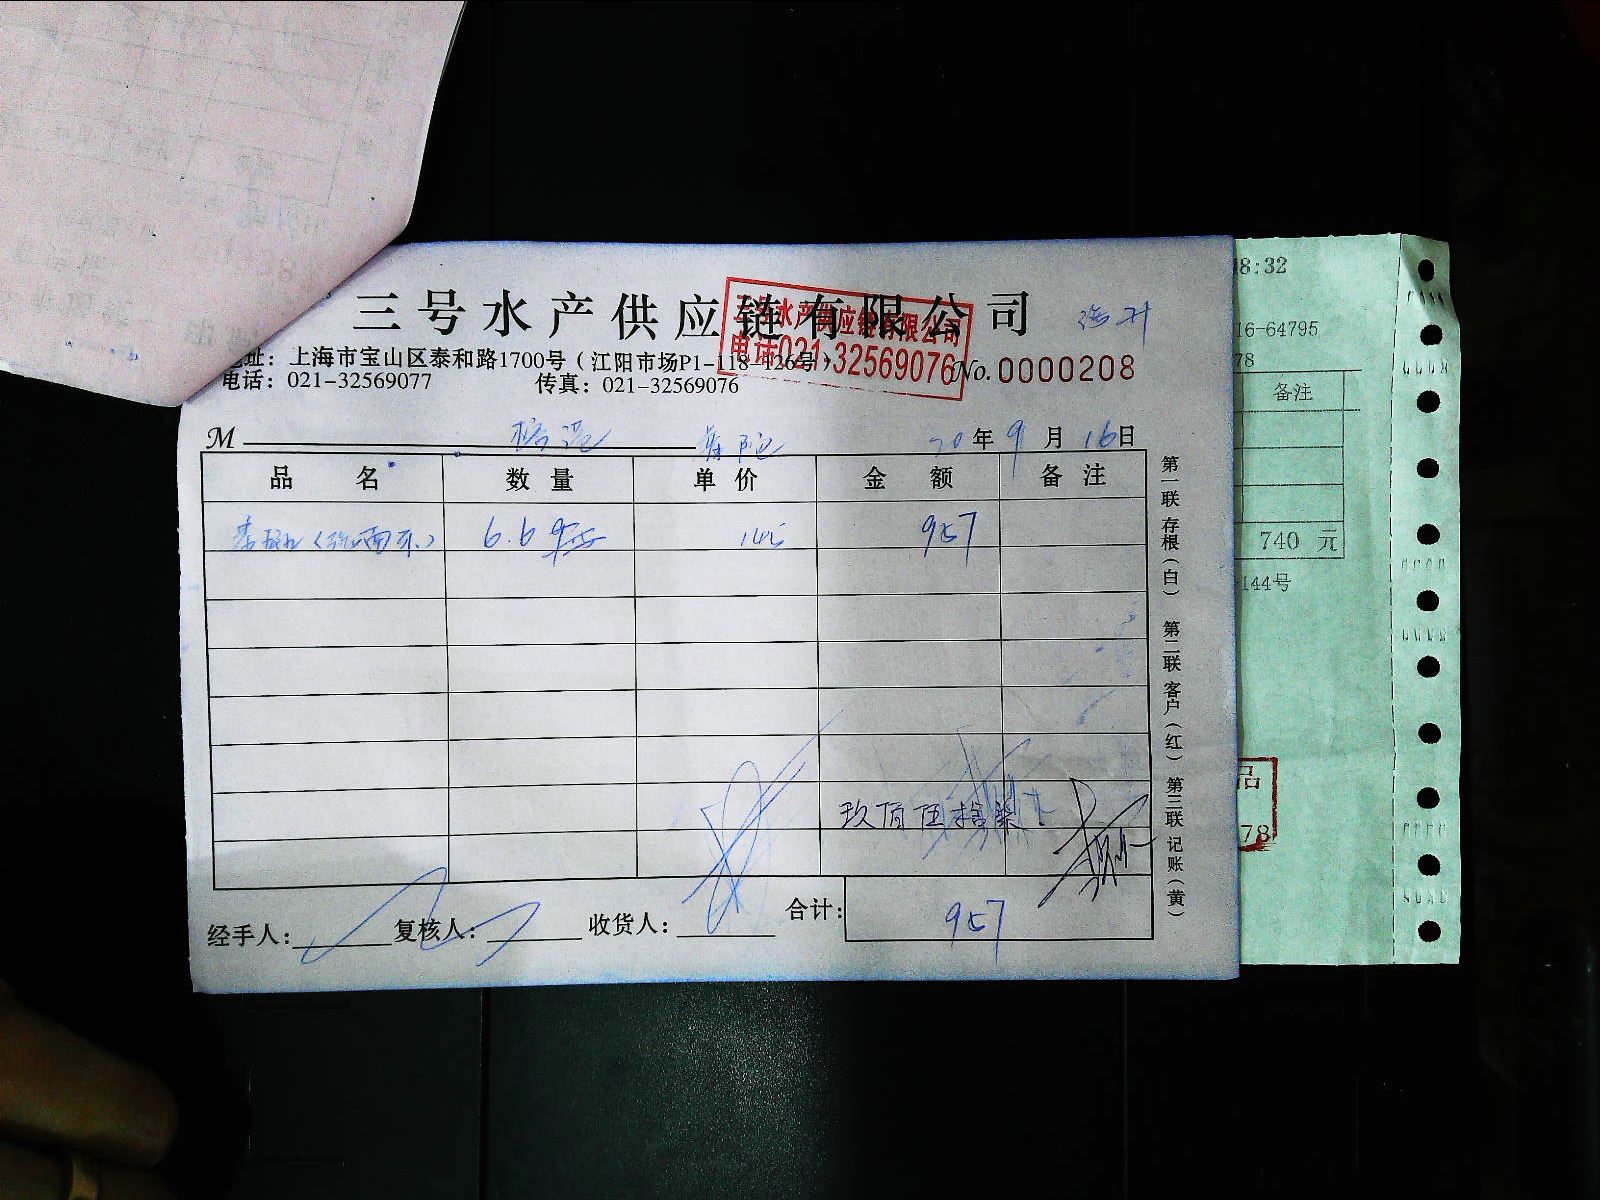 三号水产供应链有限公司
三号水产供应链有限公司
电话021-32569076
地址：上海市宝山区泰和路1700号（江阳市场P1-118-126号）
电话：021-32569077 传真：021-32569076
No.0000208
M 20年9月16日
品名 数量 单价 金额 备注
6.6 145 957
玖佰伍拾柒
经手人： 复核人： 收货人： 合计： 957
第一联 存根（白） 第二联 客户（红） 第三联 记账（黄）
18:32
16-64795
78
备注
740 元
144号
品
78